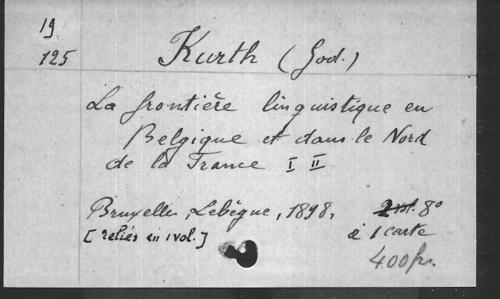 19
125
Kurth (God.)
La frontière linguistique en
Belgique et dans le Nord
de la France I II
Bruxelles, Lebègue, 1898, 2 vol. 8°
[reliés en 1 vol.] à 1 carte
400 fr.